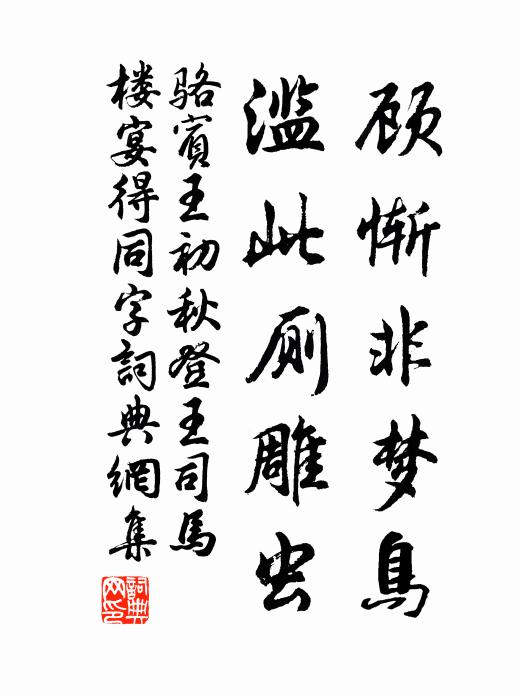 顾惭非梦鸟
滥此厕雕虫
骆賓王初秋登王司馬
楼宴得同字詞典網集
詞典
网印